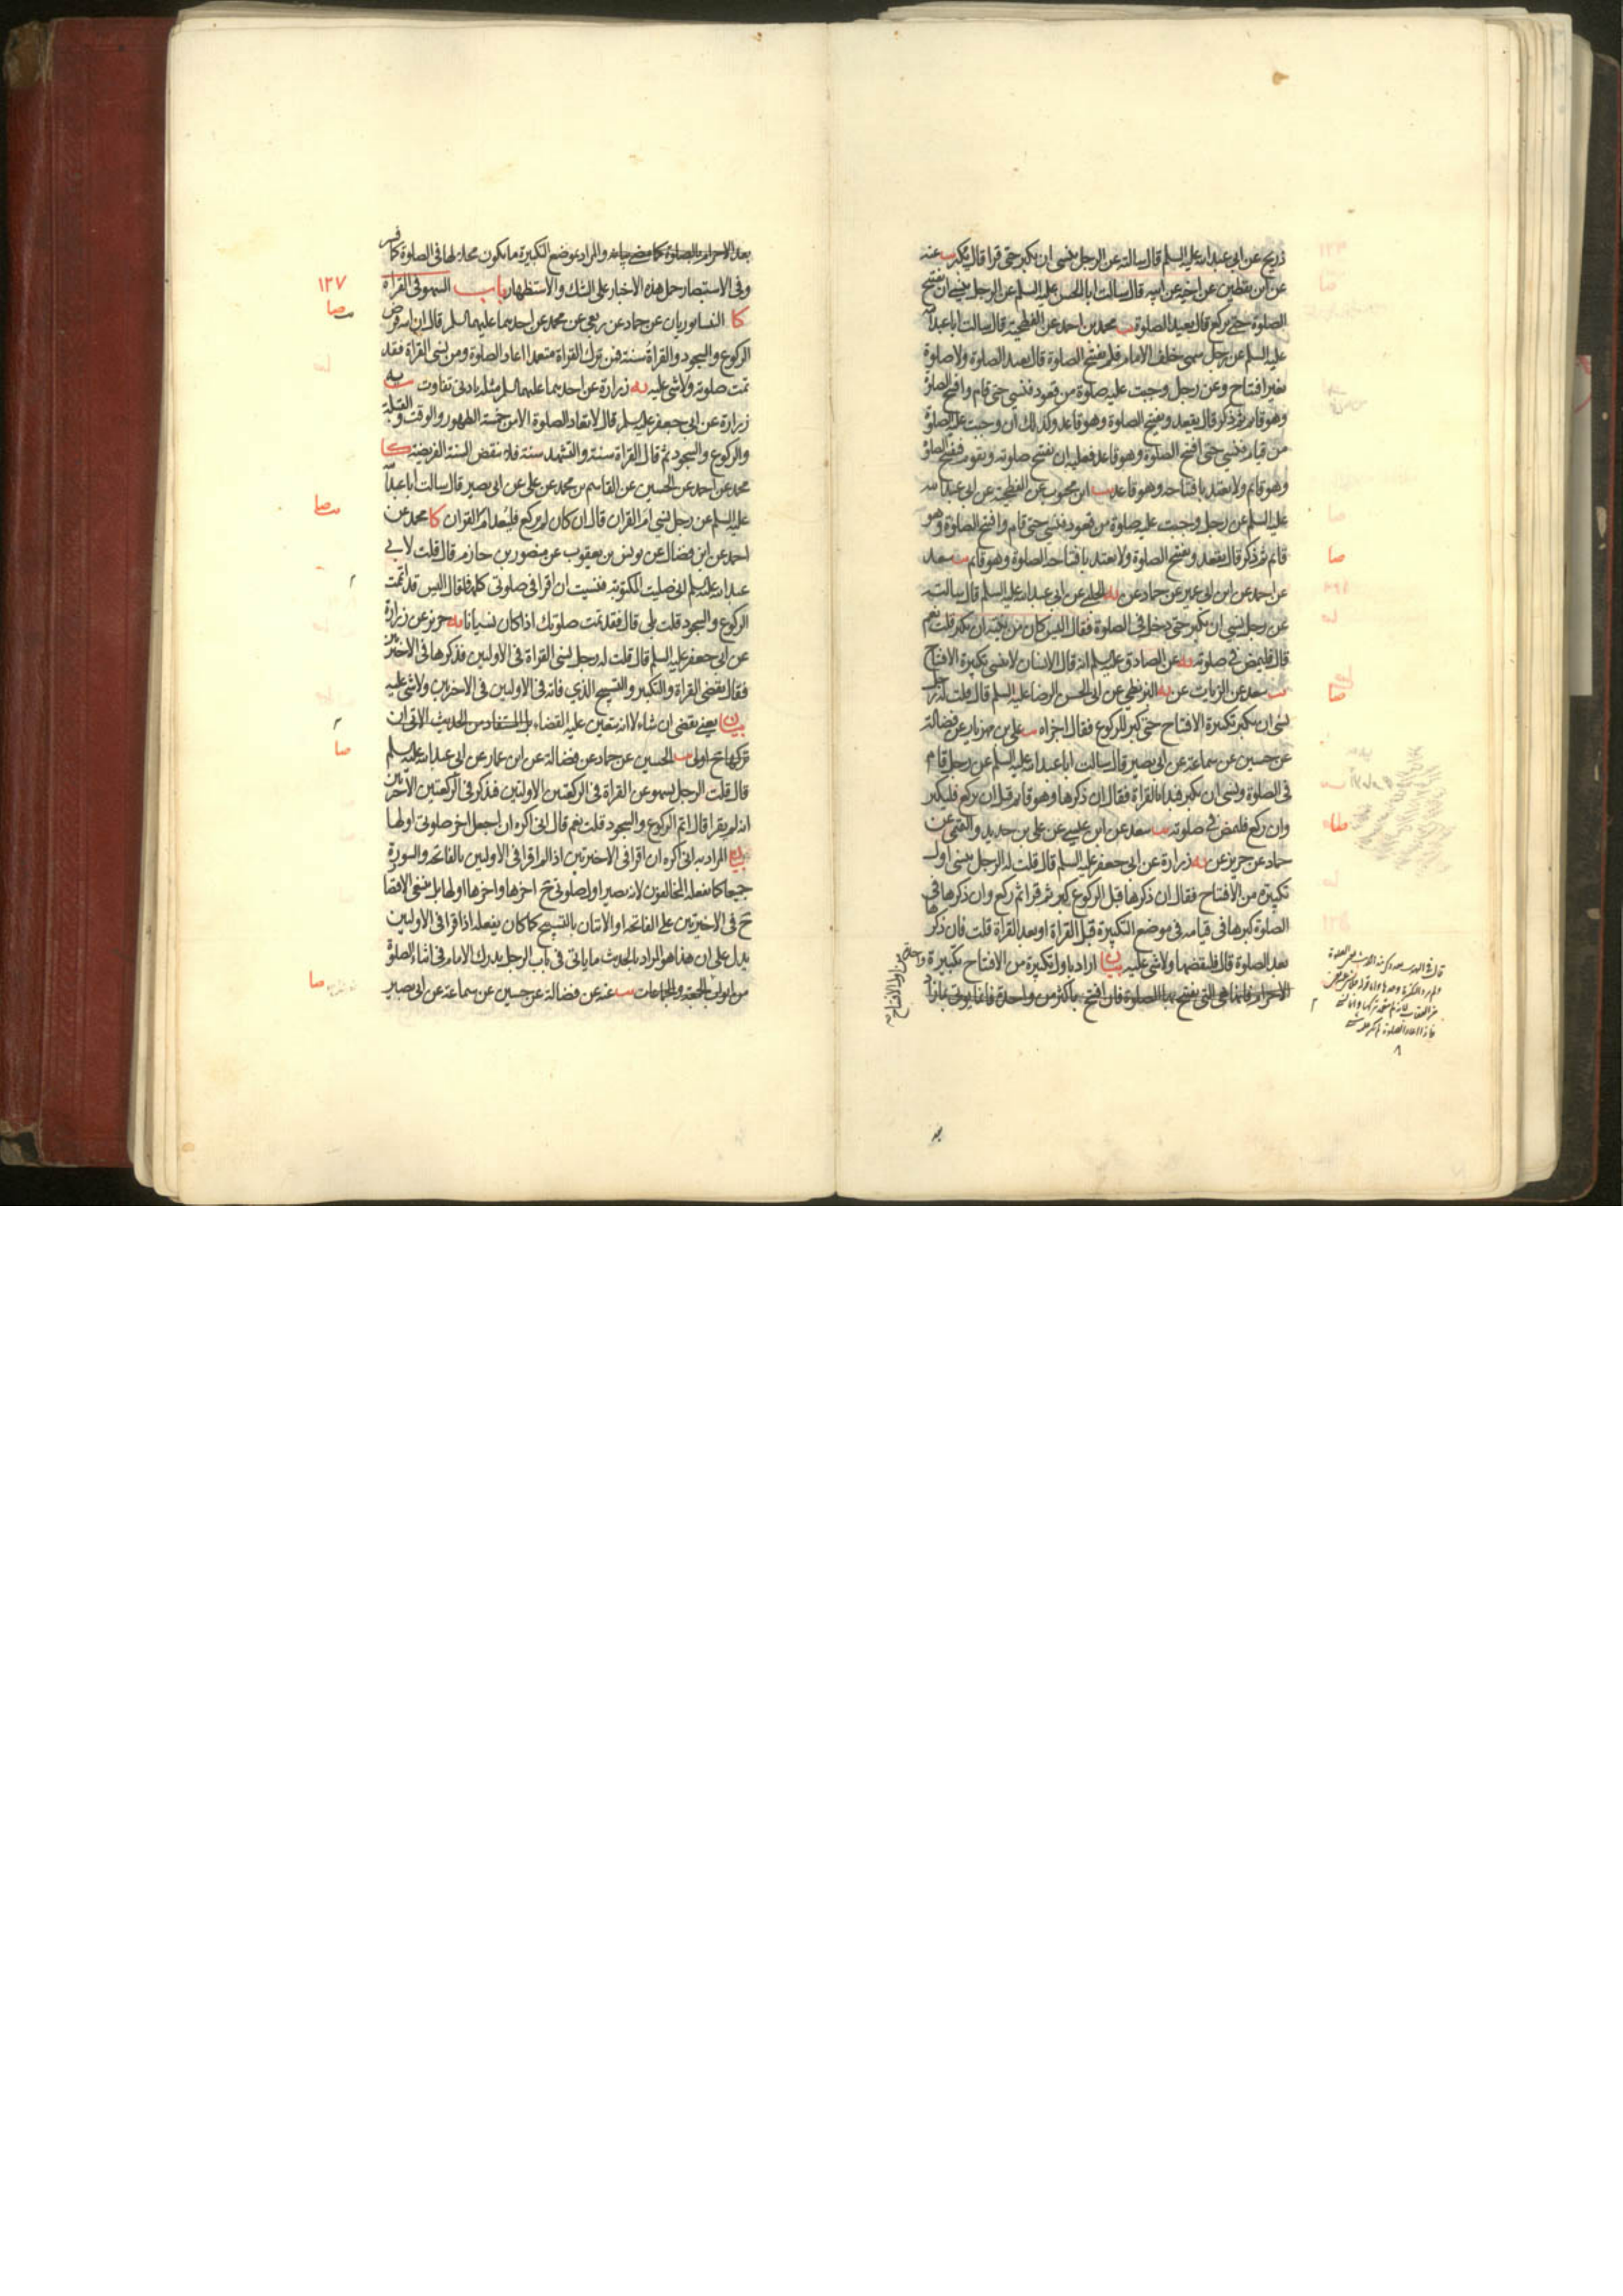 ذريح عن ابي عبد الله عليه السلم قال سالته عن الرجل ينسى ان يكبر حتى قرا قال يكبر يب عنه
عن ابن يقطين عن اخيه عن ابيه قال سالت ابا الحسن عليه السلم عن الرجل ينسى ان يفتتح
الصلوة حتى يركع قال يعيد الصلوة يب محمد بن احمد عن الفطحية قال سالت ابا عبد الله
عليه السلم عن رجل سهى خلف الامام فلم يفتتح الصلوة قال يعيد الصلوة ولا صلوة
بغير افتتاح وعن رجل وجبت عليه صلوة من قعود فنسى حتى قام وافتتح الصلوة
وهو قائم ثم ذكر قال يقعد ويفتتح الصلوة وهو قاعد وكذلك ان وجبت عليه الصلوة
من قيام فنسى حتى افتتح الصلوة وهو قاعد فعليه ان يفتتح صلوته ويقوم فيفتتح الصلوة
وهو قائم ولا يعتد بافتتاحه وهو قاعد يب ابن محبوب عن الفطحية عن ابي عبد الله
عليه السلم عن رجل وجبت عليه صلوة من قعود فنسى حتى قام وافتتح الصلوة وهو
قائم ثم ذكر قال يقعد ويفتتح الصلوة ولا يعتد بافتتاحه الصلوة وهو قائم يب سعد
عن احمد عن ابن ابي عمير عن حماد عن يه الحلبي عن ابي عبد الله عليه السلم قال سالته
عن رجل نسى ان يكبر حتى دخل في الصلوة فقال اليس كان من نيته ان يكبر قلت نعم
قال فليمض في صلوته يه عن الصادق عليه السلم انه قال الانسان لا ينسى تكبيرة الافتتاح
يب سعد عن الزيات عن يه البزنطي عن ابي الحسن الرضا عليه السلم قال قلت له رجل
نسى ان يكبر تكبيرة الافتتاح حتى كبر للركوع فقال اجزاه يب علي بن مهزيار عن فضالة
عن حسين عن سماعة عن ابي بصير قال سالت ابا عبد الله عليه السلم عن رجل قام
في الصلوة ونسى ان يكبر فبدا بالقراة فقال ان ذكرها وهو قائم قبل ان يركع فليكبر
وان ركع فليمض في صلوته يب سعد عن ابن عيسى عن علي بن حديد والتميمي عن
حماد عن حريز عن يه زرارة عن ابي جعفر عليه السلم قال قلت له الرجل ينسى اول
تكبيرة من الافتتاح فقال ان ذكرها قبل الركوع كبر ثم قرا ثم ركع وان ذكرها في
الصلوة كبرها في قيامه في موضع التكبيرة قبل القراة او بعد القراة قلت فان ذكرها
بعد الصلوة قال فليقضها ولا شي عليه بيان اراد باول تكبيرة من الافتتاح تكبيرة
الاحرام فانها هي التي يفتتح بها الصلوة فان افتتح باكثر من واحدة فانما يوتى بما زاد
بعد الاحرام بالصلوة كما مضى بيانه والمراد بموضع التكبيرة ما يكون محلا لها في الصلوة كما فسر
وفي الاستبصار حمل هذه الاخبار على الشك والاستظهار باب السهو في القراة
١٣٧
كا النيسابوريان عن حماد عن ربعي عن محمد عن احدهما عليهما السلم قال ان الله فرض
الركوع والسجود والقراة سنة فمن ترك القراة متعمدا اعاد الصلوة ومن نسى القراة فقد
تمت صلوته ولا شي عليه يه زرارة عن احدهما عليهما السلم مثله بادنى تفاوت يه
زرارة عن ابي جعفر عليه السلم قال لا تعاد الصلوة الا من خمسة الطهور والوقت والقبلة
والركوع والسجود ثم قال القراة سنة والتشهد سنة فلا تنقض السنة الفريضة كا
محمد عن احمد عن الحسين عن القاسم بن محمد عن علي عن ابي بصير قال سالت ابا عبد الله
عليه السلم عن رجل نسى ام القران قال ان كان لم يركع فليعد ام القران كا محمد عن
احمد عن ابن فضال عن يونس بن يعقوب عن منصور بن حازم قال قلت لابي
عبد الله عليه السلم اني صليت المكتوبة فنسيت ان اقرا في صلوتي كلها فقال اليس قد اتممت
الركوع والسجود قلت بلى قال فقد تمت صلوتك اذا كان نسيانا يه حريز عن زرارة
عن ابي جعفر عليه السلم قال قلت له رجل نسى القراة في الاوليين فذكرها في الاخيرتين
فقال يقضي القراة والتكبير والتسبيح الذي فاته في الاوليين في الاخيرتين ولا شي عليه
بيان يعني يقضي ان شاء لا انه يتعين عليه القضاء بل المستفاد من الحديث الاتي ان
تركها ح اولى يب الحسين عن حماد عن فضالة عن ابن عمار عن ابي عبد الله عليه السلم
قال قلت الرجل يسهو عن القراة في الركعتين الاوليين فيذكر في الركعتين الاخيرتين
انه لم يقرا قال اتم الركوع والسجود قلت نعم قال اني اكره ان اجعل اخر صلوتي اولها
بيان المراد به اني اكره ان اقرا في الاخيرتين اذا لم اقرا في الاوليين بالفاتحة والسورة
جميعا كما يفعله المخالفون لانه يصير اول صلوتي ح اخرها واخرها اولها بل ينبغي الاقتصار
ح في الاخيرتين على الفاتحة او الاتيان بالتسبيح كما كان يفعله اذا قرا في الاوليين
يدل على ان هذا هو المراد بالحديث ما ياتي في باب الرجل يدرك الامام في اثناء الصلوة
من ابواب الجمعة والجماعات يب عنه عن فضالة عن حسين عن سماعة عن ابي بصير